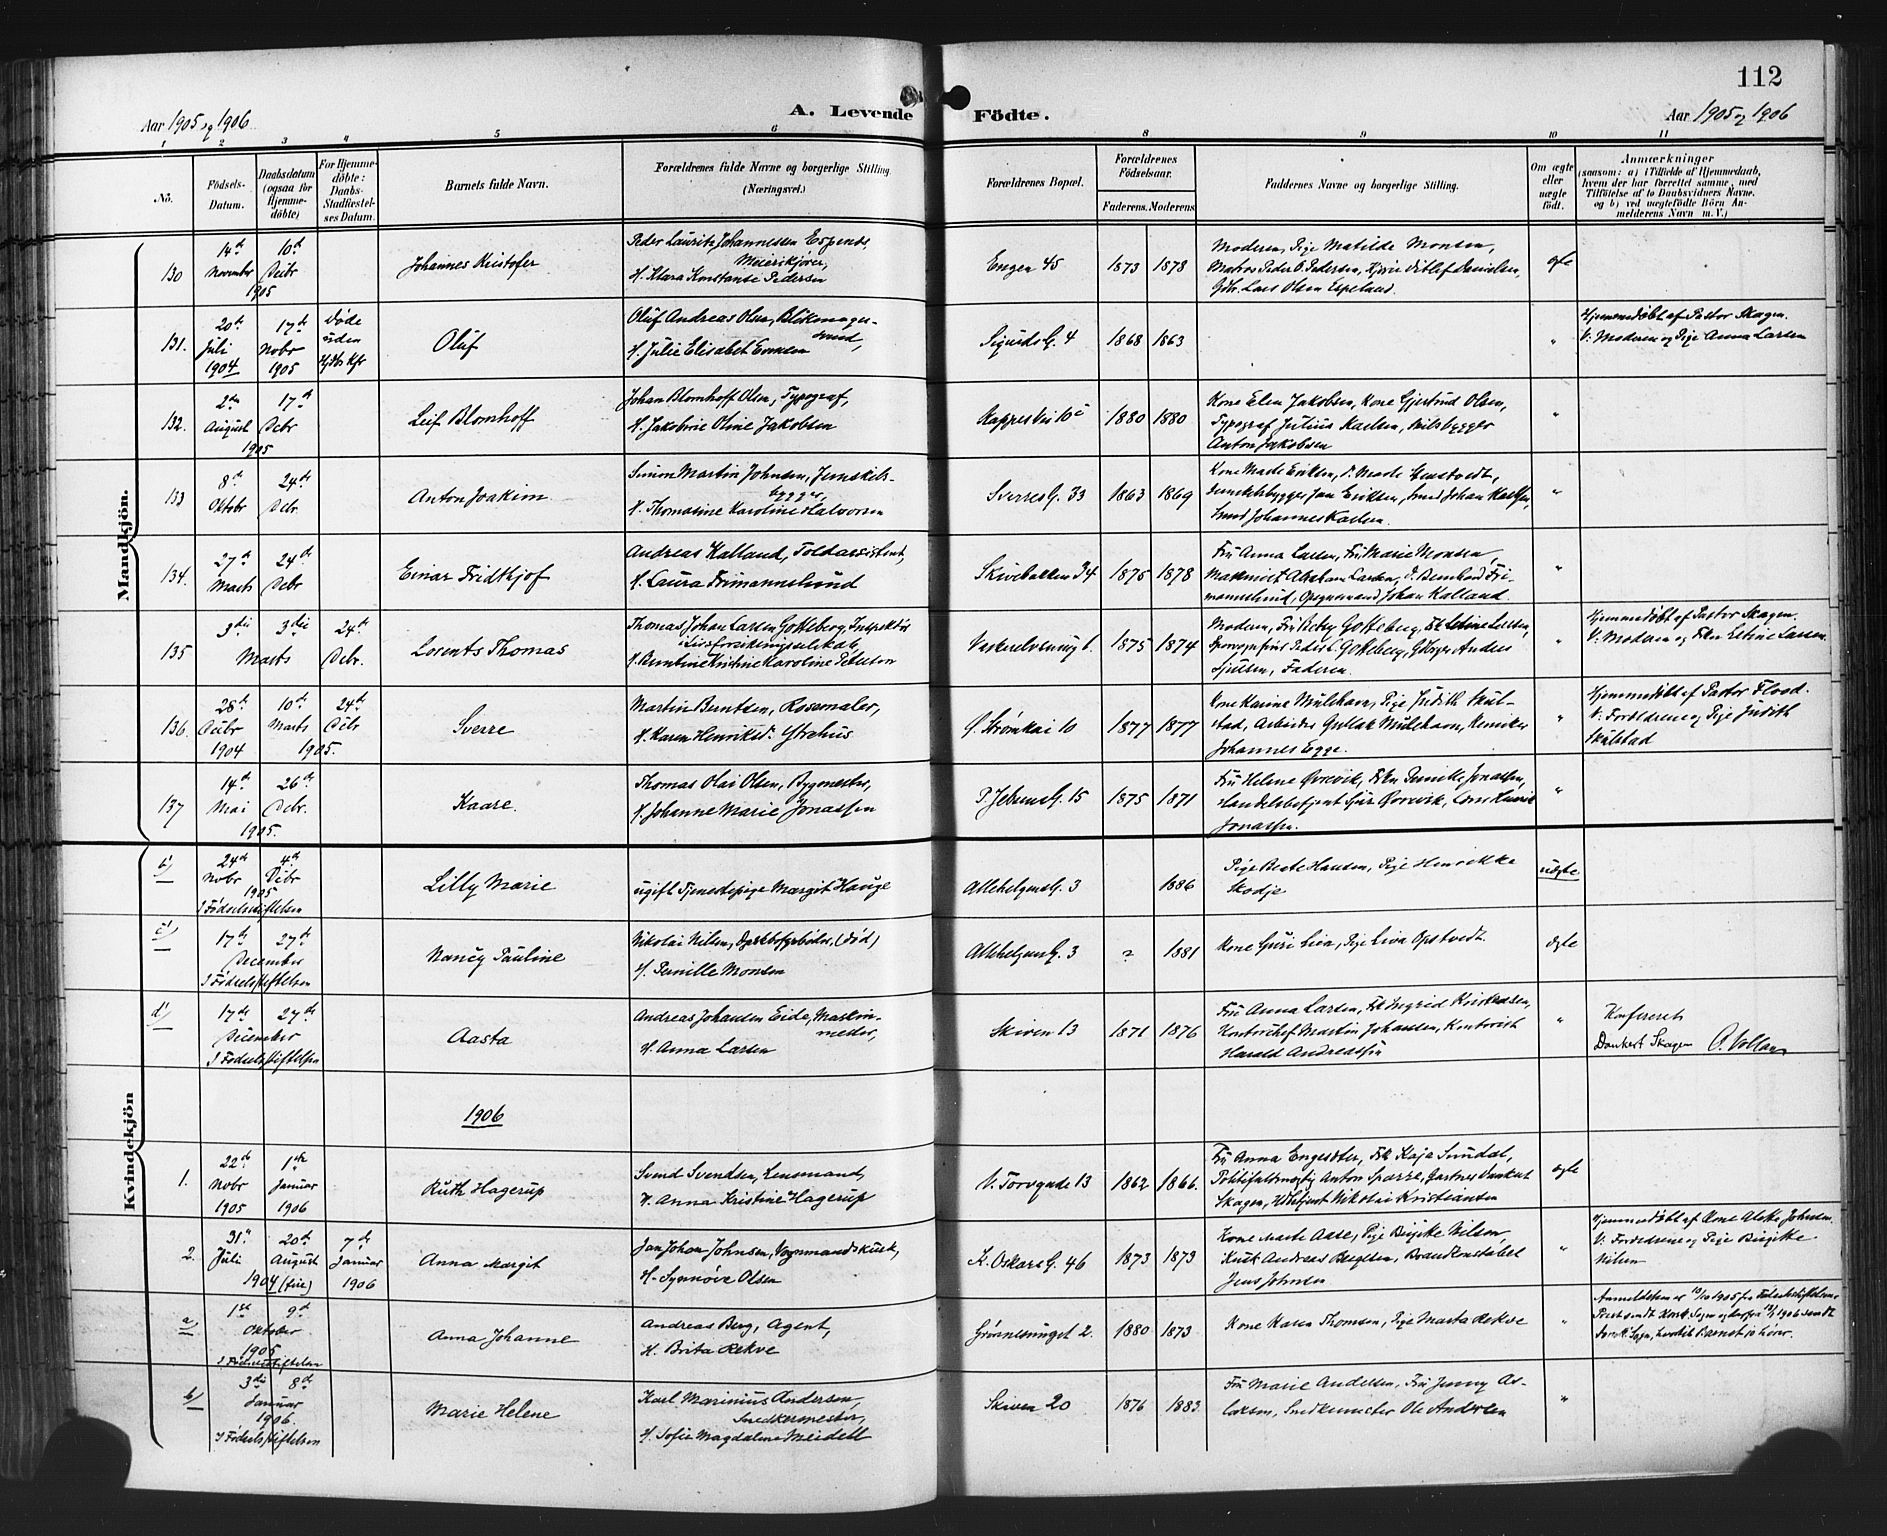 112
Aar 1905 og 1906
A. Levende Födte.
Aar 1905 og 1906
1 2 3 4 5 6 8 9 10 11
No.
Födsels-Datum.
Daabsdatum (ogsaa for Hjemme-döbte)
For Hjemme-döbte: Daabs-Stadfæstel-ses Datum.
Barnets fulde Navn.
Forældrenes fulde Navne og borgerlige Stilling. (Næringsvei.)
Forældrenes Bopæl.
Forældrenes Födselsaar.
Faderens. Moderens
Faddernes Navne og borgerlige Stilling.
Om ægte eller uægte födt.
Anmærkninger
(saasom: a) i Tilfælde af Hjemmedaab, hvem der har forrettet samme, med Tilföielse af to Daabsvidners Navne. og b) ved uægtefödte Börn An-melderens Navn m. V.)
Mandkjön.
130 14de November 10de Debr 1905
Johannes Kristofer
Peder Lauritz Johannessen Espende, Meierikjører,
H. Klara Konstanse Pedersen
Engen 45 1873 1878
Moderen, Pige Matilde Monsen,
Matros Peder O. Pedersen, Kjører Ditlef Danielsen,
Gdbr. Lars Olsen Espeland.
egte
131. 20de Juli 1904 17de Nobr 1905 Døde uden
Oluf
Oluf Andreas Olsen, Blikmager-svend,
H. Julie Elisabet Evensen
Sigurds G. 4 1868 1863
"
Hjemmedøbt af Pastor Skagen.
V: Moderen og Pige Anna Larsen
132. 2den August 17de Debr 1905
Leif Blomhoff
Johan Blomhoff Olsen, Typograf,
H. Jakobine Oline Jakobsen
1880 1880
Kone Elen Jakobsen, Kone Gjertrud Olsen,
Typograf Julius Karlsen,
Anton Jakobsen
"
133 8de Oktobr 24de Debr
Anton Joakim
Simon Martin Johnsen, Jernskibs-bygger,
H. Thomasine Karoline Halvorsen
Sverres G. 33 1863 1869
Kone Marte Eriksen,
Jernskibsbygger Jan Eriksen, Smed Johan Karlsen,
Smed Johannes Karlsen.
"
134. 27de Marts 24de Debr
Einar Fridthjof
Andreas Kalland, Toldassistent,
H. Laura Frimannslund
Skivebakken 34 1875 1878
Fru Anna Larsen, Fru Marie Monsen,
Maskinist Abraham Larsen, D. Bernhard Fri-
mannslund, Opsynsmand Johan Kalland.
"
135 3die 3die Marts 24de Debr.
Lorents Thomas
Thomas Johan Larsen Gotteberg, Inspektør
Livsforsikringsselskab,
H. Berntine Kristine Karoline Peterson
1875 1874
"
Hjemmedøbt af Pastor Skagen.
V. Moderen og Frkn Eline Larsen.
136. 28de Debr 1904 10de Marts 24de Debr 1905.
Sverre
Martin Berntsen, Rosemaler,
H. Karen Henriksd. Ystehus
S. Strømkai 10 1877 1877
Kone Karina Mulehavn, Pige Judith Skul-
stad, Arbeider Gotlak Mulehavn,
Johannes Egge.
"
Hjemmedøbt af Pastor Flood.
V: Forældrene og Pige Judith
Skulstad
137 14de Mai 26de Debr. 1905.
Kaare.
Thomas Olai Olsen, Bygmester,
H. Johanne Marie Jonassen
P. Jebsens G. 15 1875 1871
Fru Helene Øvrevik, Frkn Pernille Jonassen,
Handelsbetjent Sjur Øvrevik, Henrik
Jonassen.
"
Kvindekjön
b) 24de Nobr 4de Debr 1905
I Fødselsstiftelsen
Lilly Marie
ugift Tjenestepige Margit Hauge
Allehelgens G. 3 1886
Pige Berte Hansen, Pige Henrikke
Skodje
uægte
c) 17de 27de December
I Fødselsstiftelsen
Nancy Pauline
Nikolai Nilsen, Dæksfyrbøder, (død)
H. Pernille Monsen
Allehelgens G. 3 ? 1881
Kone Guri Lien, Pige Lina Opstvedt.
ægte
d) 17de 27de December
I Fødselsstiftelsen
Aasta
Andreas Johansen Eide, Maskin-mester,
H. Anna Larsen
Skiven 13 1871 1876
Fru Anna Larsen, Frk Ingrid Kristensen,
Kontorchef Martin Johansen, Kontorist
Harald Andreassen
"
Konfereret
Dankert Skagen O. Vollan
1906
1. 22de Nobr 1905 1ste Januar 1906
Ruth Hagerup
Svend Svendsen, Lensmand,
H. Anna Kristine Hagerup
V. Torvgade 13 1862 1866
Fru Anna Engesæter, Frk Kaja Sundal,
Politifuldmægtig Anton Sparre, Gartner Dankert
Skagen, Nikolai Kristiansen
ægte
2. 31te Juli 20de August 1904 (fire) 7de Januar 1906
Anna Margit
Jan Johan Johnsen, Vognmandskusk,
H. Synnøve Olsen
K. Oskars G. 46 1873 1873
Kone Marte Aase, Pige Birgitte Nilsen,
Kusk Andreas Bergesen, Brandkonstabel
Jens Johnsen
"
Hjemmedøbt af Kone Johnsen.
V. Forældrene og Pige Birgitte
Nilsen
a) 1ste 9de Oktober 1905
I Fødselsstiftelsen
Anna Johanne
Andreas Berg, Agent,
H. Brita Rekve
Grønnevinget 2. 1880 1873
Kone Karen Thomsen, Pige Marta Rekve
"
b) 3die 8de Januar 1906.
I Fødselsstiftelsen
Marie Helene
Karl Marinius Andersen,
Snedkermester,
H. Sofie Magdalene Meidell
Skiven 20 1876 1883
Fru Marie Andersen, Fru Jenny As-
laksen, Snedkermester Ole Andersen
"